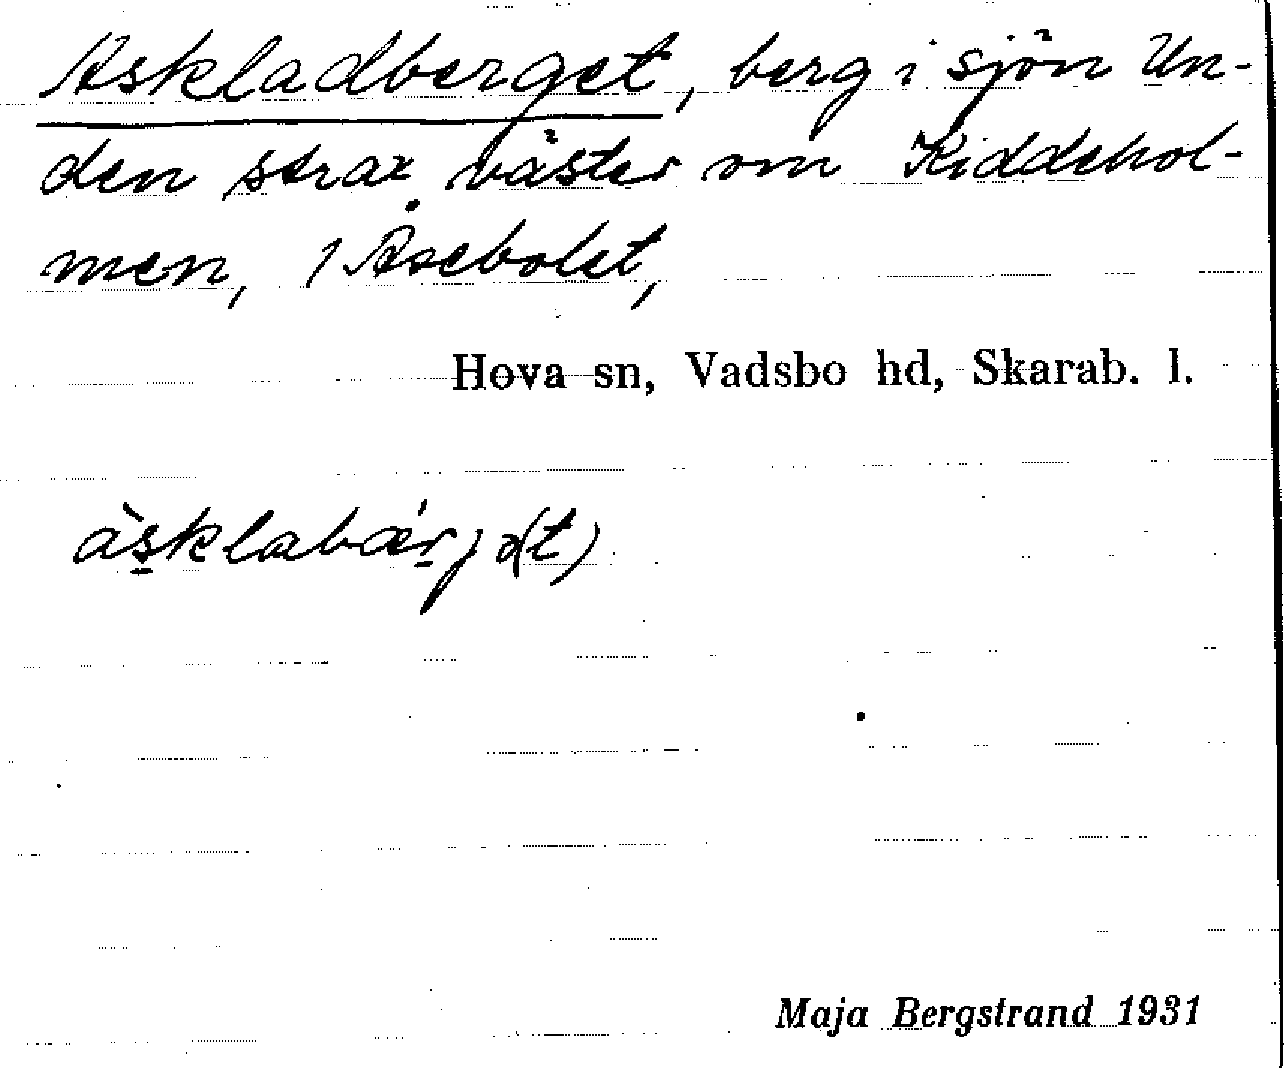 Askladberget, berg i sjön Un-
den strax väster om Kiddehol-
men, 1 Åsebolet,
Hova sn, Vadsbo hd, Skarab. l.
àsklabǽrjə(t)
Maja Bergstrand 1931